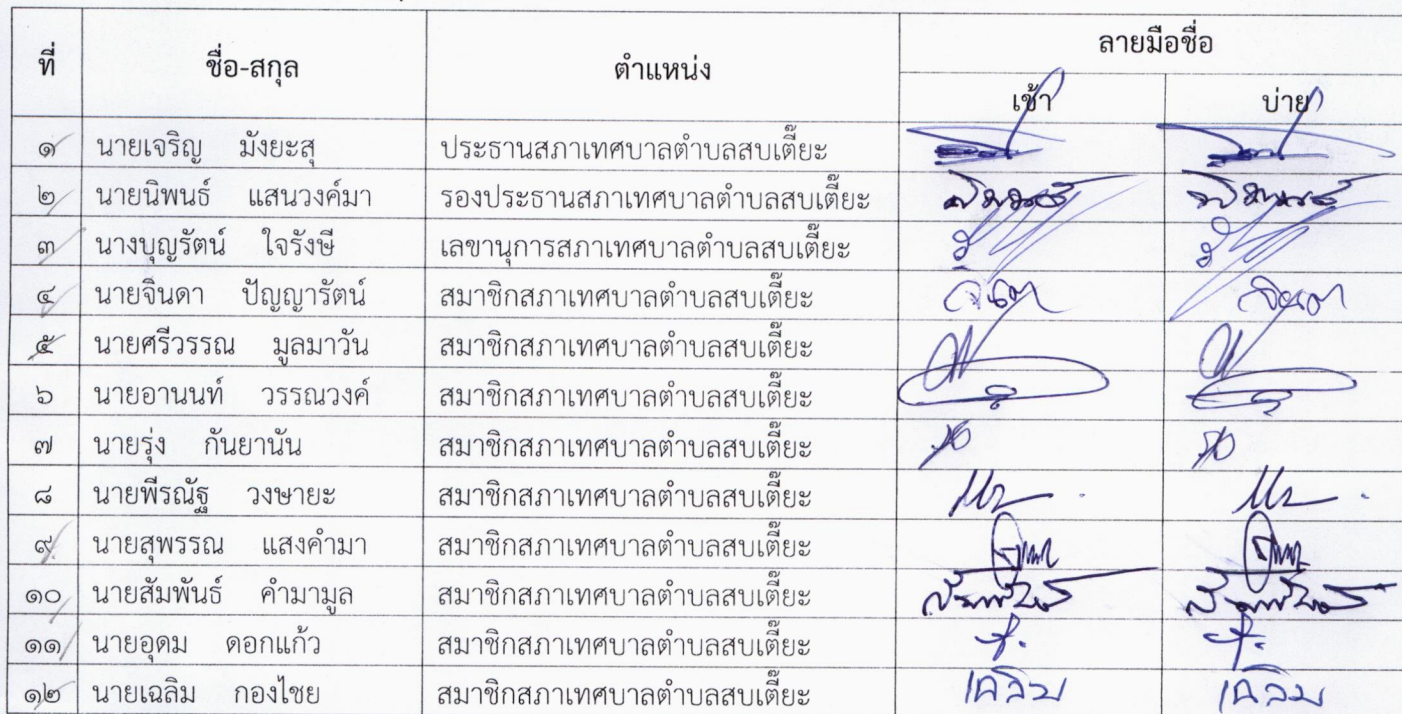 ที่ ชื่อ-สกุล ตำแหน่ง ลายมือชื่อ
เช้า บ่าย
๑ นายเจริญ มังยะสุ ประธานสภาเทศบาลตำบลสบเตี๊ยะ
๒ นายนิพนธ์ แสนวงค์มา รองประธานสภาเทศบาลตำบลสบเตี๊ยะ
๓ นางบุญรัตน์ ใจรังษี เลขานุการสภาเทศบาลตำบลสบเตี๊ยะ
๔ นายจินดา ปัญญารัตน์ สมาชิกสภาเทศบาลตำบลสบเตี๊ยะ จินดา จินดา
๕ นายศรีวรรณ มูลมาวัน สมาชิกสภาเทศบาลตำบลสบเตี๊ยะ
๖ นายอานนท์ วรรณวงค์ สมาชิกสภาเทศบาลตำบลสบเตี๊ยะ
๗ นายรุ่ง กันยานัน สมาชิกสภาเทศบาลตำบลสบเตี๊ยะ
๘ นายพีรณัฐ วงษายะ สมาชิกสภาเทศบาลตำบลสบเตี๊ยะ
๙ นายสุพรรณ แสงคำมา สมาชิกสภาเทศบาลตำบลสบเตี๊ยะ
๑๐ นายสัมพันธ์ คำมามูล สมาชิกสภาเทศบาลตำบลสบเตี๊ยะ สัมพันธ์ สัมพันธ์
๑๑ นายอุดม ดอกแก้ว สมาชิกสภาเทศบาลตำบลสบเตี๊ยะ
๑๒ นายเฉลิม กองไชย สมาชิกสภาเทศบาลตำบลสบเตี๊ยะ เฉลิม เฉลิม